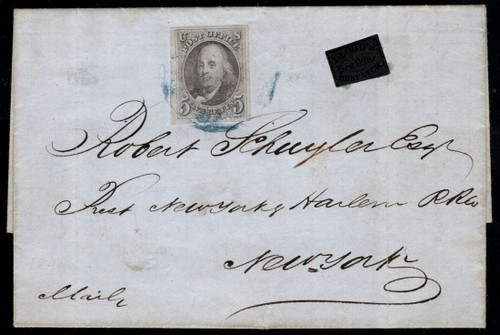 U S
POST OFFICE
5 5
Robert Schuyler Esqr
Prest New York & Harlem R.R.Co
New York
Mail